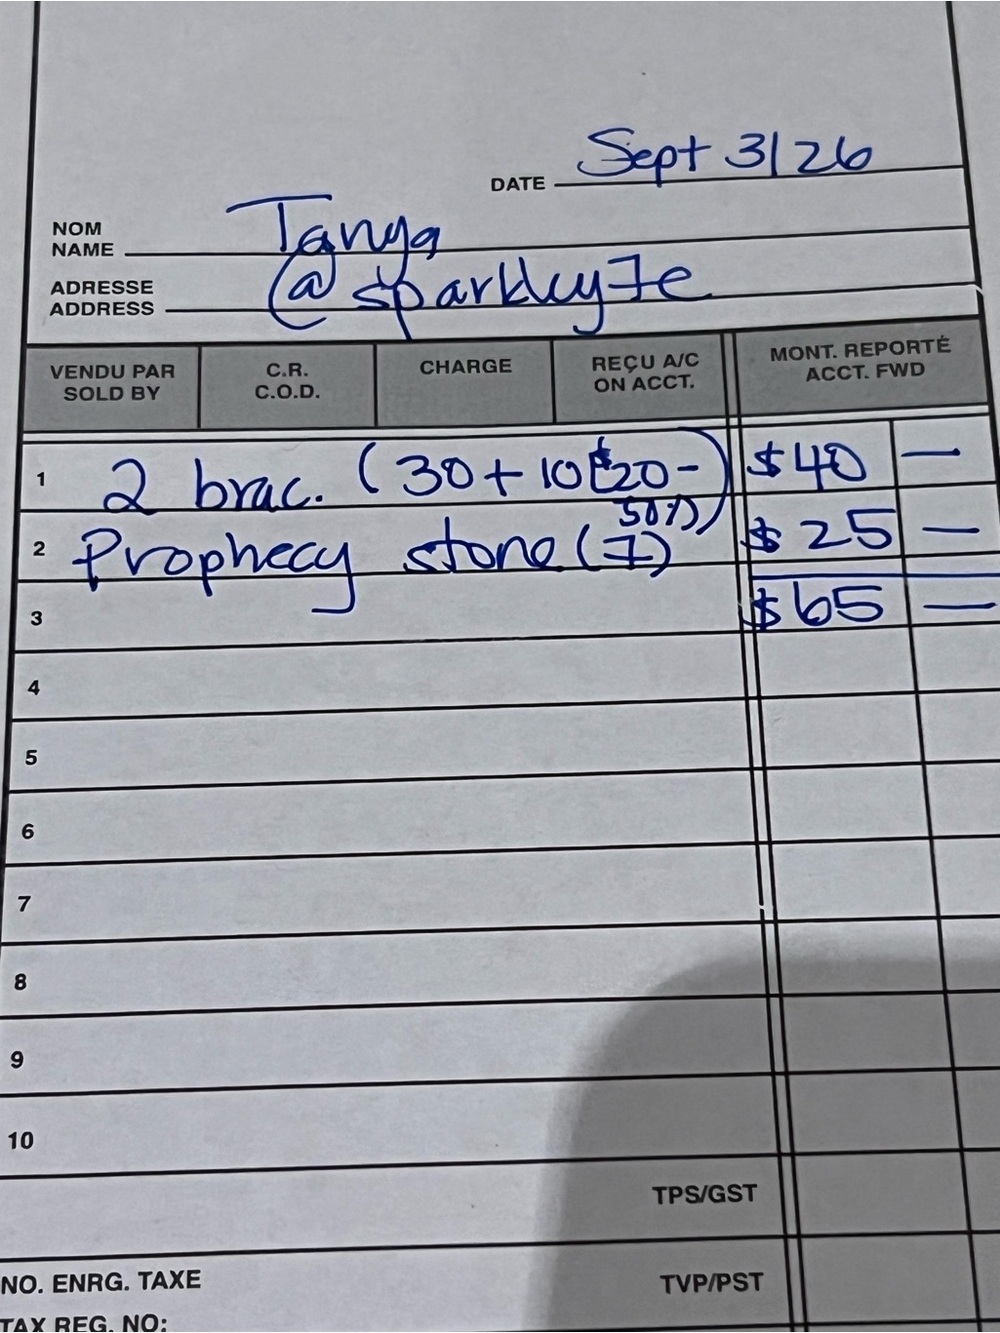 DATE Sept 3/26
NOM
NAME Tanya
ADRESSE
ADDRESS @sparkley7e
VENDU PAR
SOLD BY
C.R.
C.O.D.
CHARGE
REÇU A/C
ON ACCT.
MONT. REPORTÉ
ACCT. FWD
1 2 brac. (30+10($20- $40 —
50%))
2 Prophecy stone (7) $25 —
3 $65 —
4
5
6
7
8
9
10
TPS/GST
NO. ENRG. TAXE TVP/PST
TAX REG. NO: